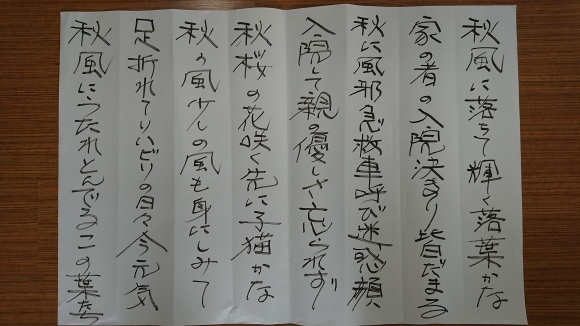 秋風に落ちて輝く落葉かな
家の者の入院決まり皆だまる
秋に風邪急救車呼び迷惑顔
入院して親の優しさ忘られず
秋桜の花咲く先に子猫かな
秋の風少しの風も身にしみて
足折れてリハビリの日々今元気
秋風にうたれとんでるこの葉たち